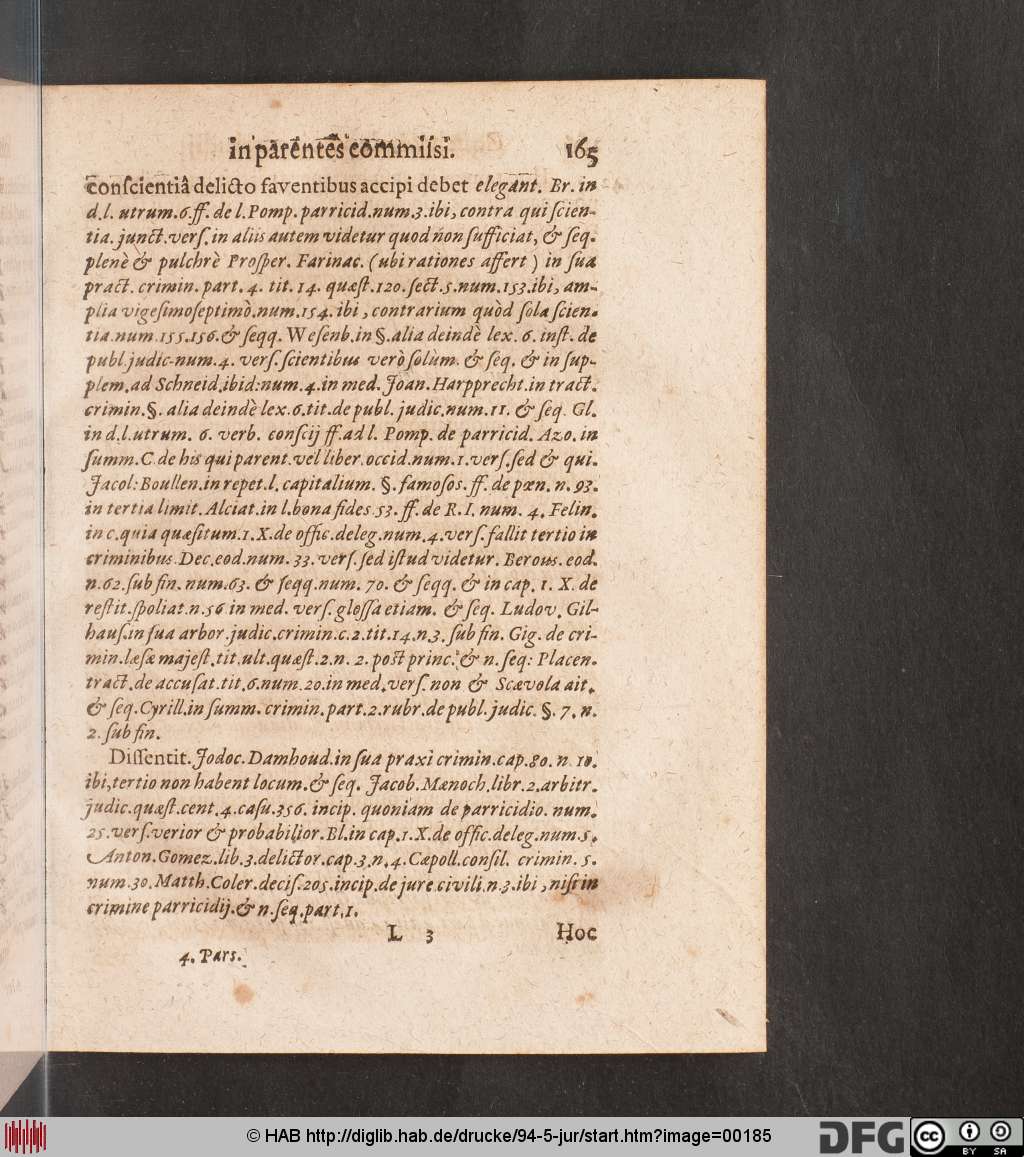 in parentes commiſsi. 165
conſcientiâ delicto faventibus accipi debet elegant. Br. in
d.l. utrum.6.ff. de l. Pomp. parricid.num.3.ibi, contra qui ſcien-
tia. junct.verſ.in aliis autem videtur quod non ſufficiat, & ſeq.
plenè & pulchrè Proſper. Farinac. (ubi rationes affert) in ſua
pract. crimin. part. 4. tit. 14. quæſt.120.ſect.5.num.153.ibi, am-
plia vigeſimoſeptimò.num.154.ibi, contrarium quòd ſola ſcien-
tia.num.155.156.& ſeqq. Weſenb.in §.alia deindè lex. 6. inſt. de
publ.judic-num.4. verſ.ſcientibus verò ſolùm. & ſeq. & in ſup-
plem.ad Schneid.ibid:num.4.in med. Joan.Harpprecht.in tract.
crimin.§. alia deindè lex.6.tit.de publ. judic.num.11. & ſeq. Gl.
in d.l.utrum. 6. verb. conſcij ff.ad l. Pomp. de parricid. Azo. in
ſumm.C.de his qui parent.vel liber.occid.num.1.verſ.ſed & qui.
Jacol: Boullen.in repet.l.capitalium. §.famoſos.ff.de pœn. n. 93.
in tertia limit. Alciat.in l.bona fides 53. ff. de R.I. num. 4. Felin.
in c.quia quæſitum.1.X.de offic.deleg.num.4.verſ.fallit tertio in
criminibus. Dec.eod.num. 33. verſ.ſed iſtud videtur. Berous. eod.
n.62.ſub fin. num.63. & ſeqq.num. 70. & ſeqq. & in cap. 1. X. de
reſtit.ſpoliat.n.56 in med. verſ.gloſſa etiam. & ſeq. Ludov. Gil-
hauſ.in ſua arbor.judic.crimin.c.2.tit.14.n.3. ſub fin. Gig. de cri-
min.læſæ majeſt.tit.ult.quæſt.2.n. 2. poſt princ. & n.ſeq: Placen.
tract.de accuſat.tit.6.num.20.in med.verſ.non & Scævola ait.
& ſeq.Cyrill.in ſumm.crimin.part.2.rubr.de publ.judic. §. 7. n.
2. ſub fin.
Diſſentit. Jodoc. Damhoud.in ſua praxi crimin.cap.80. n. 10.
ibi,tertio non habent locum.& ſeq. Jacob.Mænoch.libr.2.arbitr.
judic.quæſt.cent.4.caſu.356. incip. quoniam de parricidio. num.
25.verſ.verior & probabilior.Bl.in cap.1.X.de offic.deleg.num.5.
Anton.Gomez.lib.3.delictor.cap.3.n.4.Cæpoll.conſil. crimin. 5.
num.30.Matth.Coler.deciſ.205.incip.de jure civili.n.3.ibi, niſi in
crimine parricidij.& n.ſeq.part.1.
L 3 Hoc
4. Pars.
© HAB http://diglib.hab.de/drucke/94-5-jur/start.htm?image=00185
DFG
cc BY SA